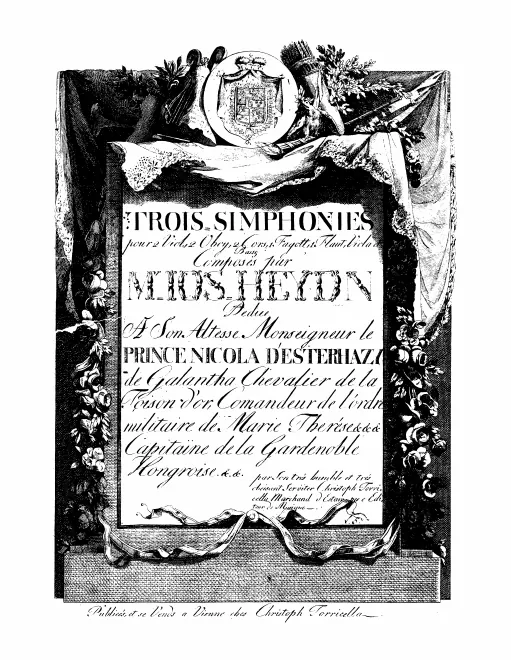 TROIS SIMPHONIES
pour 2 Viol, 2 Oboy, 2 Cors, 1 Fagott, 1 Flaut, Viola et
Bass
Composés par
M. IOS. HEYDN
Dediés
A Son Altesse Monseigneur le
PRINCE NICOLA D'ESTERHAZI
de Galantha Chevalier de la
Toison d'or, Comandeur de l'ordre
militaire de Marie Therèse &&&
Capitaine de la Gardenoble
Hongroise. &.&.
par son très humble et très
obeisant Serviter Christoph Torri
cella Marchand d'Estampy e Edi
teur de Musique
Publiées, et se Vends a Vienne chez Christoph Torricella